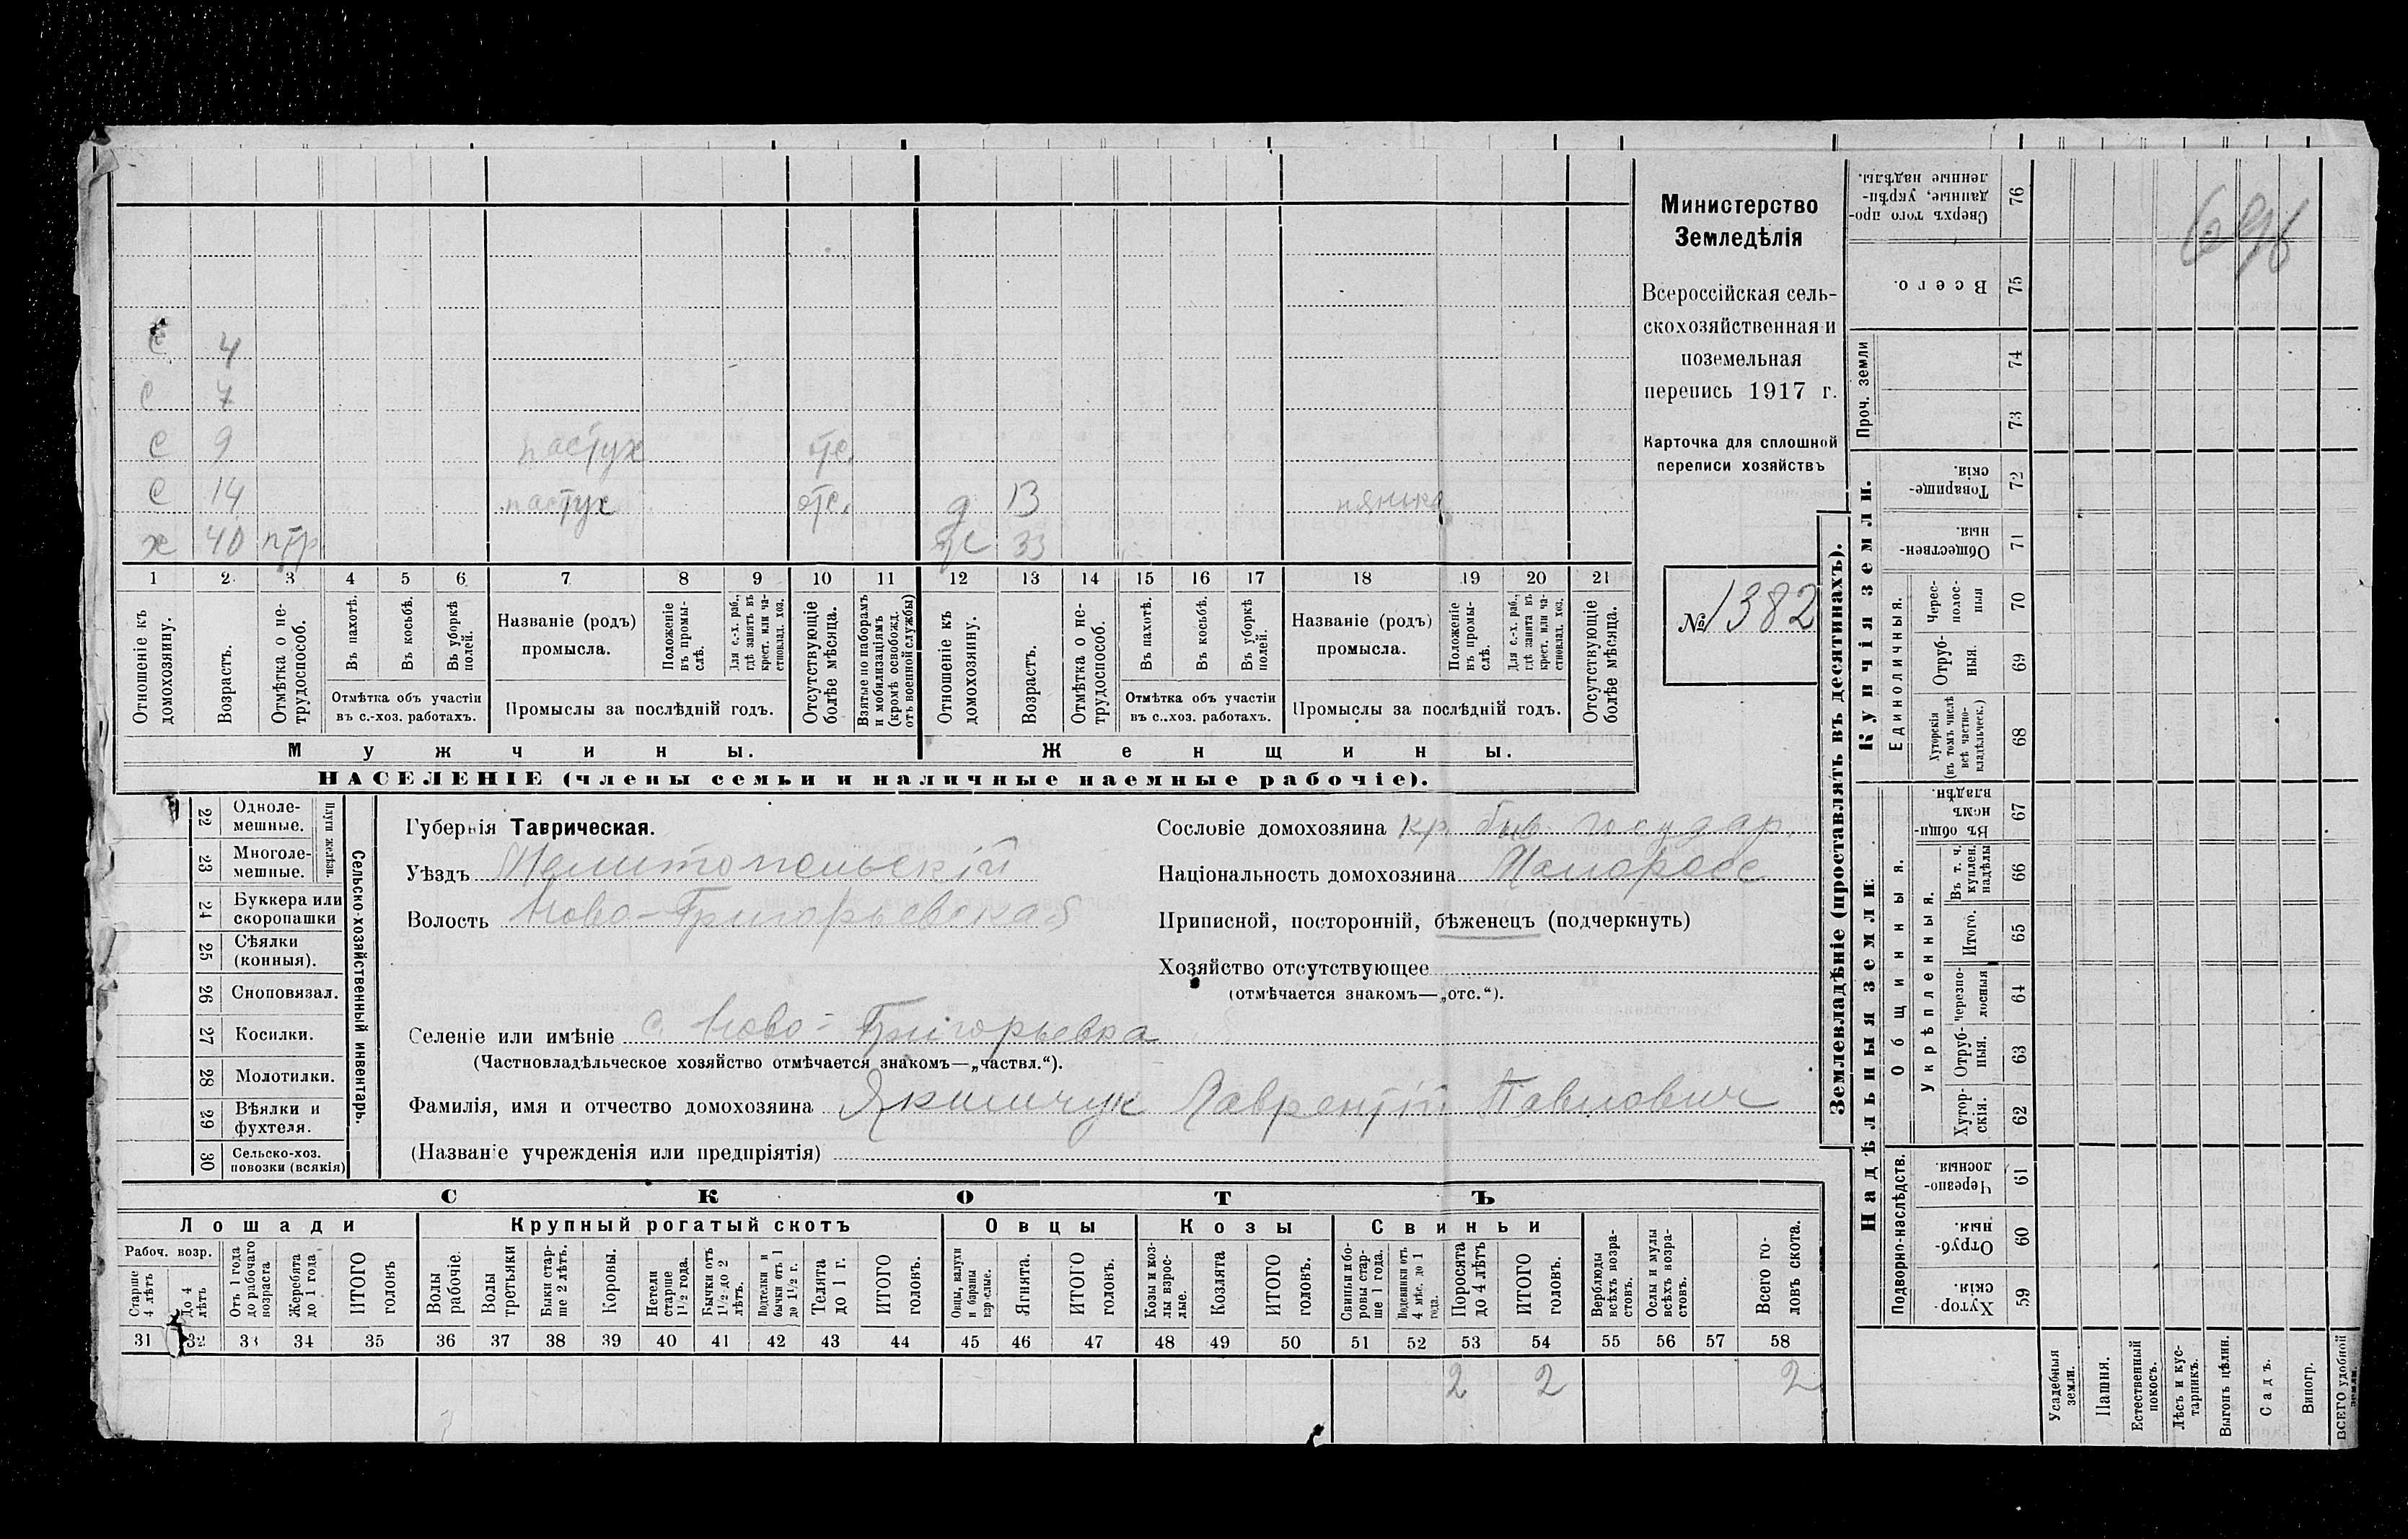 Министерство
Земледѣлія
Всероссійская сель-
скохозяйственная и
поземельная
перепись 1917 г.
Карточка для сплошной
переписи хозяйствъ
№ 1382
696
С 4
С 7
С 9 пастух отс.
С 14 пастух отс. д 13 нянька
х 40 нтр ж 33
1 2 3 4 5 6 7 8 9 10 11 12 13 14 15 16 17 18 19 20 21
Отношеніе къ домохозяину.
Возрастъ.
Отмѣтка о не-трудоспособ.
Въ пахотѣ.
Въ косьбѣ.
Въ уборкѣ полей.
Отмѣтка объ участіи
въ с.-хоз. работахъ.
Названіе (родъ)
промысла.
Положеніе въ промы-слѣ.
Для с.-х. раб., гдѣ занятъ въ крест. или ча-стновлад. хоз.
Промыслы за послѣдній годъ.
Отсутствующіе болѣе мѣсяца.
Взятые по наборамъ и мобилизаціямъ (кромѣ освобожд. отъ военной службы)
Отношеніе къ домохозяину.
Возрастъ.
Отмѣтка о не-трудоспособ.
Въ пахотѣ.
Въ косьбѣ.
Въ уборкѣ полей.
Отмѣтка объ участіи
въ с..хоз. работахъ.
Названіе (родъ)
промысла.
Положеніе въ промы-слѣ.
Для с.-х. раб., гдѣ занята въ крест. или ча-стновлад. хоз.
Промыслы за послѣдній годъ.
Отсутствующіе болѣе мѣсяца.
Мужчины. Женщины.
НАСЕЛЕНІЕ (члены семьи и наличные наемные рабочіе).
22 Одноле-мешные.
23 Многоле-мешные.
Плуги желѣзн.
24 Буккера или скоропашки
25 Сѣялки (конныя).
26 Сноповязал.
27 Косилки.
28 Молотилки.
29 Вѣялки и фухтеля.
30 Сельско-хоз. повозки (всякія)
Сельско-хозяйственный инвентарь.
Губернія Таврическая.
Уѣздъ Мелитопольскій
Волость Ново-Григорьевская
Сословіе домохозяина кр. быв. государ.
Національность домохозяина Малоросс
Приписной, посторонній, бѣженецъ (подчеркнуть)
Хозяйство отсутствующее
(отмѣчается знакомъ—„отс.“).
Селеніе или имѣніе с. Ново-Григорьевка
(Частновладѣльческое хозяйство отмѣчается знакомъ—„частвл.“).
Фамилія, имя и отчество домохозяина Якимчук Лаврентій Павлович
(Названіе учрежденія или предпріятія)
СКОТЪ
Лошади Крупный рогатый скотъ Овцы Козы Свиньи
Рабоч. возр.
Старше 4 лѣтъ
До 4 лѣтъ
Отъ 1 года до рабочаго возраста
Жеребята до 1 года
ИТОГО головъ
Волы рабочіе.
Волы третьяки
Быки стар-ше 2 лѣтъ.
Коровы.
Нетели старше 1½ года.
Бычки отъ 1½ до 2 лѣтъ.
Подтелки и бычки отъ 1 до 1½ г.
Телята до 1 г.
ИТОГО головъ.
Овцы, валухи и бараны взрослые.
Ягнята.
ИТОГО головъ.
Козы и коз-лы взрос-лые.
Козлята
ИТОГО головъ.
Свиньи и бо-ровы стар-ше 1 года.
Подсвинки отъ 4 мѣс. до 1 года.
Поросята до 4 лѣтъ
ИТОГО головъ.
Верблюды всѣхъ возра-стовъ.
Ослы и мулы всѣхъ возра-стовъ.
Всего го-ловъ скота.
31 32 33 34 35 36 37 38 39 40 41 42 43 44 45 46 47 48 49 50 51 52 53 54 55 56 57 58
2 2 2
Землевладѣніе (проставлять въ десятинахъ).
Надѣльныя земли.
Купчія земли.
Проч. земли
Подворно-наслѣдств.
Общинныя.
Укрѣпленныя.
Единоличныя.
Сверхъ того про-данные, укрѣп-ленные надѣлы. 76
Всего. 75
74
73
Товарище-скія. 72
Обществен-ныя 71
Черес-полос-ныя 70
Отруб-ныя. 69
Хуторскія (въ томъ числѣ всѣ частно-владѣльческ.) 68
Въ общи-номъ владѣн. 67
Въ т. ч. куплен. надѣлы 66
Итого. 65
Черезпо-лосныя 64
Отруб-ныя. 63
Хутор-скія. 62
Черезпо-лосныя. 61
Отруб-ныя. 60
Хутор-скія 59
Усадебныя земли.
Пашня.
Естественный покосъ.
Лѣсъ и кус-тарникъ.
Выгонъ цѣлин.
Садъ.
Виногр.
ВСЕГО удобной земли.